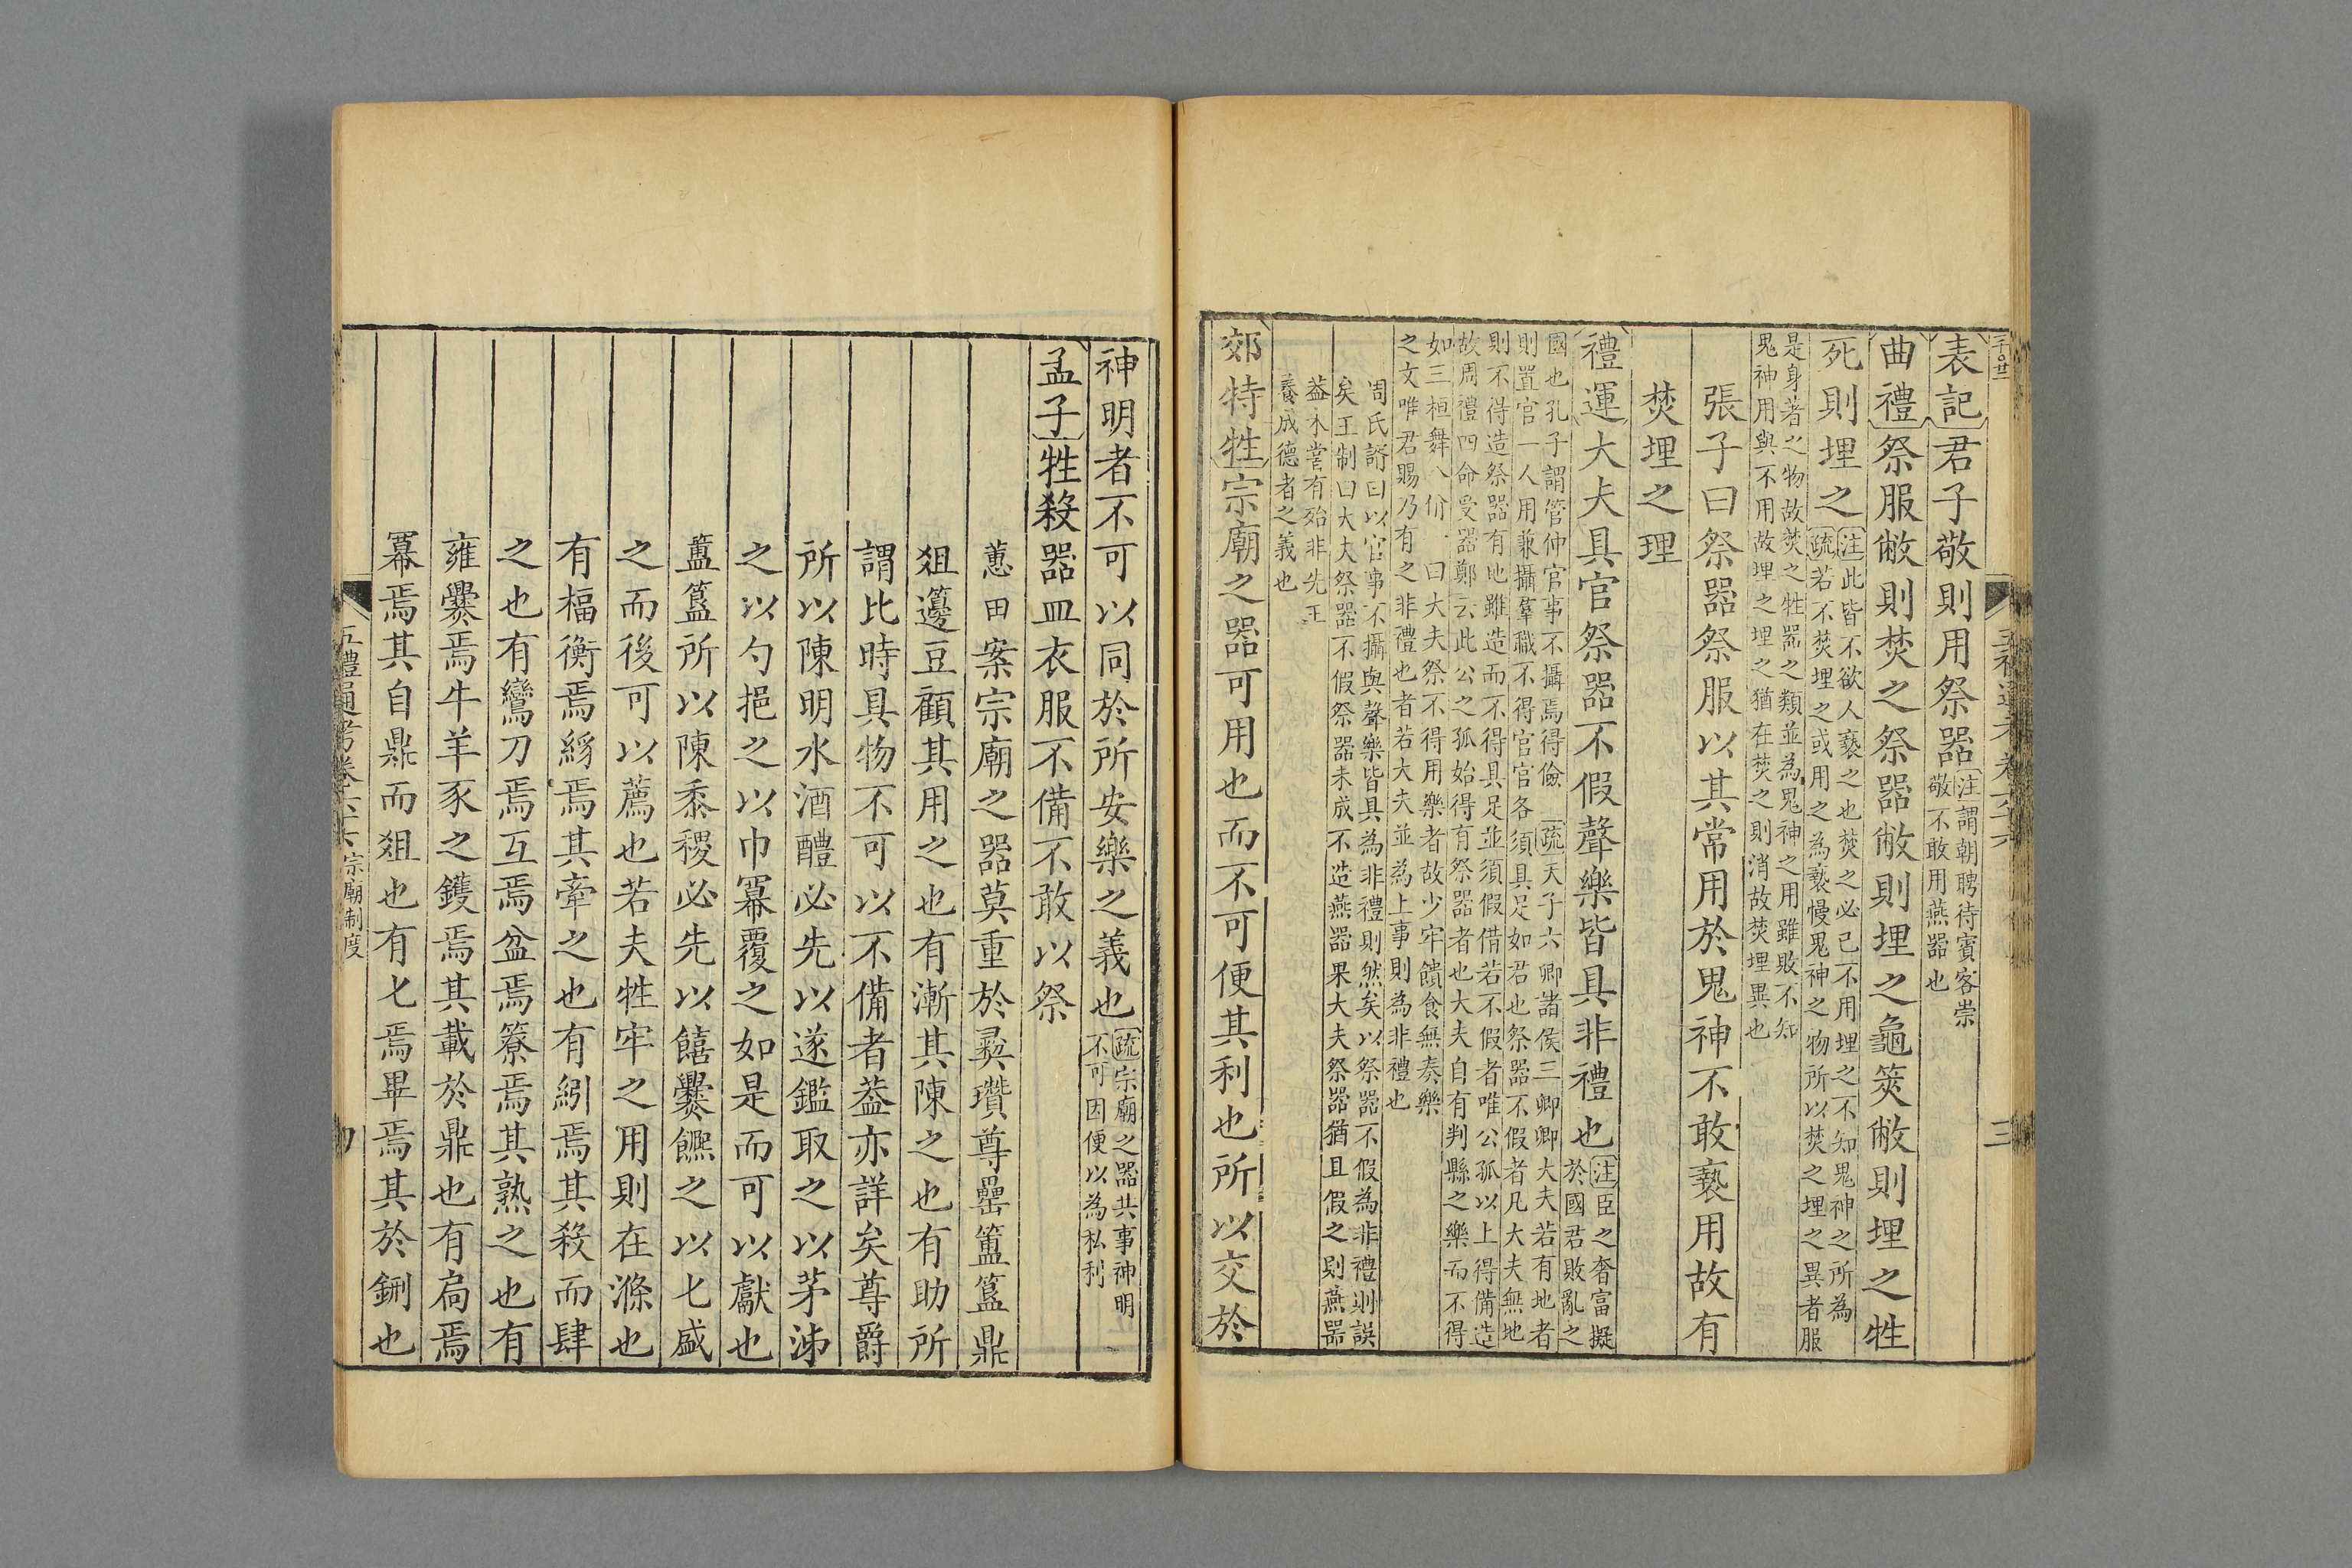 表記君子敬則用祭器注謂朝聘待賓客崇敬不敢用燕器也
曲禮祭服敝則焚之祭器敝則埋之龜筴敝則埋之牲
死則埋之注此皆不欲人褻之也焚之必已不用埋之不知鬼神之所為疏若不焚埋之或用之為褻慢鬼神之物所以焚之埋之異者服
是身著之物故焚之牲器之類並為鬼神之用雖敗不知鬼神用與不用故埋之埋之猶在焚之則消故焚埋異也
張子曰祭器祭服以其常用於鬼神不敢褻用故有
焚埋之理
禮運大夫具官祭器不假聲樂皆具非禮也注臣之奢富擬於國君敗亂之
國也孔子謂管仲官事不攝焉得儉疏天子六卿諸侯三卿卿大夫若有地者則置官一人用兼攝羣職不得官官各須具足如君也祭器不假者凡大夫無地
則不得造祭器有地雖造而不得具足並須假借若不假者唯公孤以上得備造故周禮四命受器鄭云此公之孤始得有祭器者也大夫自有判縣之樂而不得
如三桓舞八佾一曰大夫祭不得用樂者故少牢饋食無奏樂之文唯君賜乃有之非禮也者若大夫並為上事則為非禮也
周氏諝曰以官事不攝與聲樂皆具為非禮則然矣以祭器不假為非禮則誤矣王制曰大夫祭器不假祭器未成不造燕器果大夫祭器猶且假之則燕器
蓋不嘗有殆非先王養成德者之義也
郊特牲宗廟之器可用也而不可便其利也所以交於
神明者不可以同於所安樂之義也疏宗廟之器共事神明不可因便以為私利
孟子牲殺器皿衣服不備不敢以祭
蕙田案宗廟之器莫重於彞瓚尊罍簠簋鼎
俎籩豆顧其用之也有漸其陳之也有助所
謂比時具物不可以不備者蓋亦詳矣尊爵
所以陳明水酒醴必先以遂鑑取之以茅泲
之以勺挹之以巾冪覆之如是而可以獻也
簠簋所以陳黍稷必先以饎爨饎之以匕盛
之而後可以薦也若夫牲牢之用則在滌也
有楅衡焉絼焉其牽之也有紖焉其殺而肆
之也有鸞刀焉互焉盆焉簝焉其熟之也有
雍爨焉牛羊豕之鑊焉其載於鼎也有扃焉
冪焉其自鼎而俎也有匕焉畢焉其於鉶也
五禮通考卷六十六 宗廟制度